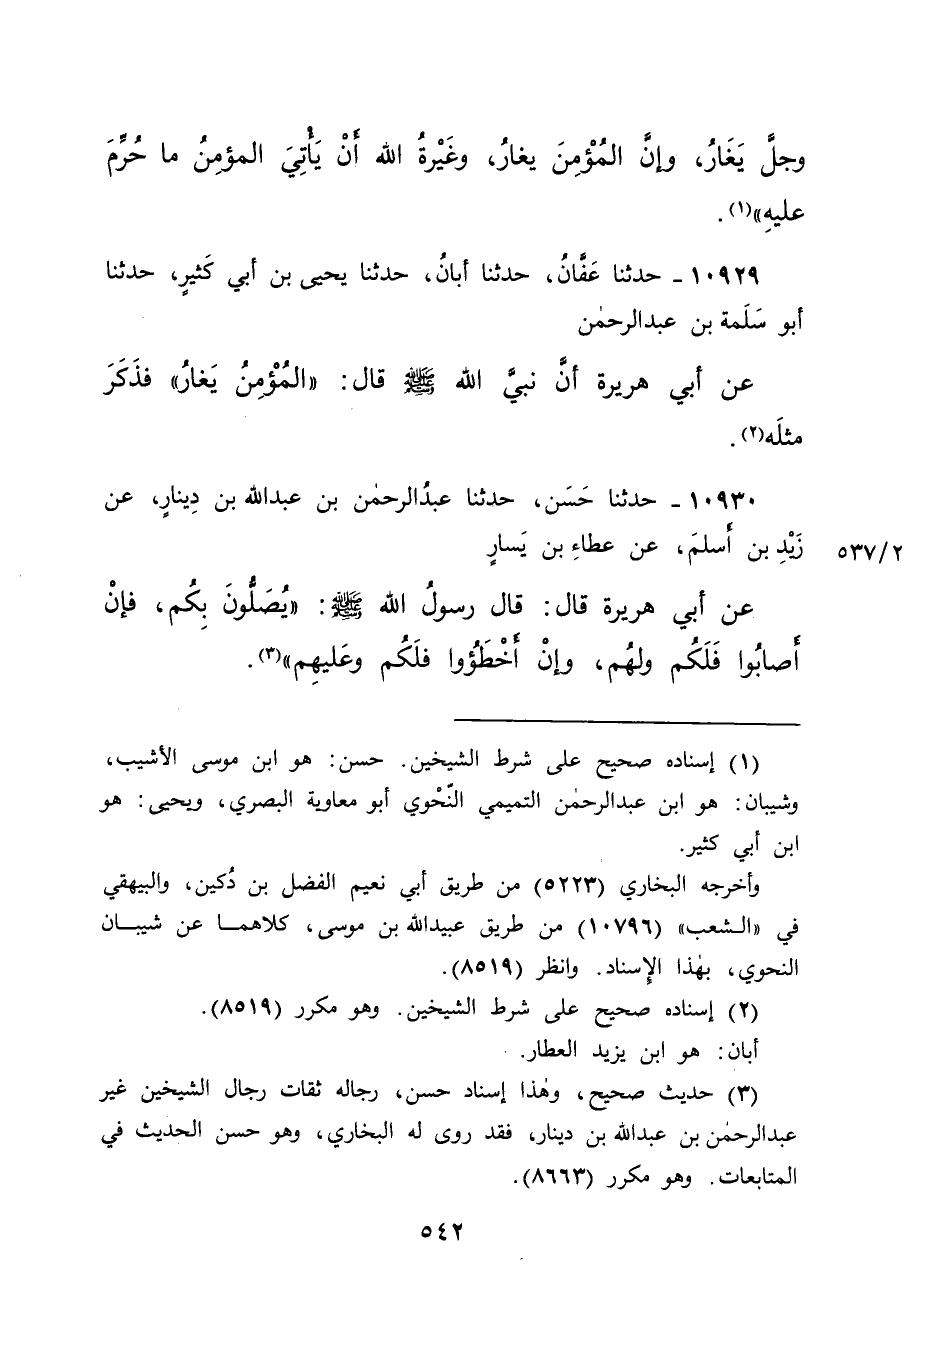 وجلَّ يَغَارُ، وإنَّ المُؤْمِنَ يغارُ، وغَيْرةُ الله أَنْ يَأْتِيَ المؤمِنُ ما حُرِّمَ
عليهِ»(١).
١٠٩٢٩ ـ حدثنا عَفَّانُ، حدثنا أبانُ، حدثنا يحيى بن أبي كَثيرٍ، حدثنا
أبو سَلَمة بن عبدالرحمٰن
عن أبي هريرة أنَّ نبيَّ الله ﷺ قال: «المُؤْمِنُ يَغارُ» فذَكَرَ
مثلَه(٢).
١٠٩٣٠ ـ حدثنا حَسَن، حدثنا عبدُالرحمٰن بن عبدالله بن دِينارٍ، عن
زَيْدِ بن أَسلمَ، عن عطاءِ بن يَسارٍ
٥٣٧/٢
عن أبي هريرة قال: قال رسولُ الله ﷺ: «يُصَلُّونَ بِكُم، فإنْ
أَصابُوا فَلَكُم ولهُم، وإنْ أَخْطَؤُوا فلَكُم وعَليهِم»(٣).
(١) إسناده صحيح على شرط الشيخين. حسن: هو ابن موسى الأشيب،
وشيبان: هو ابن عبدالرحمٰن التميمي النَّحْوي أبو معاوية البصري، ويحيى: هو
ابن أبي كثير.
وأخرجه البخاري (٥٢٢٣) من طريق أبي نعيم الفضل بن دُكين، والبيهقي
في «الشعب» (١٠٧٩٦) من طريق عبيدالله بن موسى، كلاهما عن شيبان
النحوي، بهٰذا الإسناد. وانظر (٨٥١٩).
(٢) إسناده صحيح على شرط الشيخين. وهو مكرر (٨٥١٩).
أبان: هو ابن يزيد العطار.
(٣) حديث صحيح، وهٰذا إسناد حسن، رجاله ثقات رجال الشيخين غير
عبدالرحمٰن بن عبدالله بن دينار، فقد روى له البخاري، وهو حسن الحديث في
المتابعات. وهو مكرر (٨٦٦٣).
٥٤٢